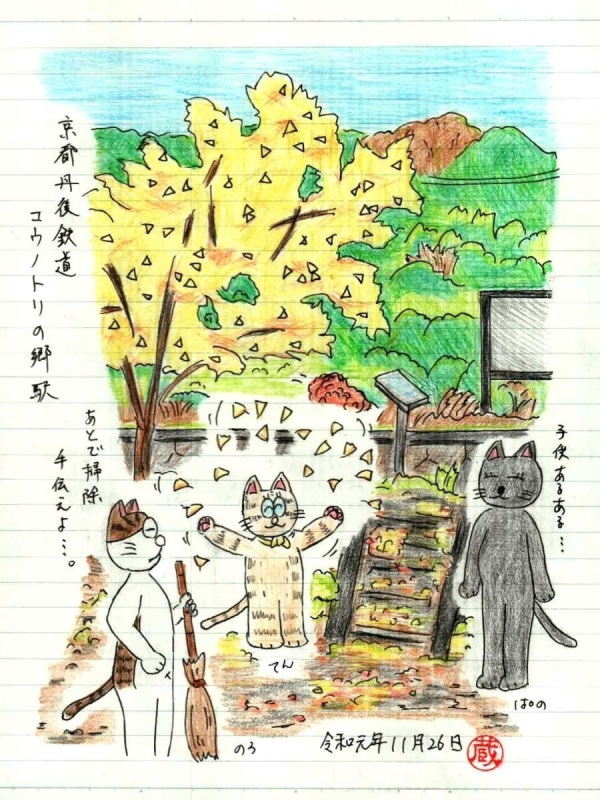 京都丹後鉄道
コウノトリの郷駅
あとで掃除
手伝えよ…。
子供あるある…
てん
ぱの
のろ
令和元年11月26日
蔵